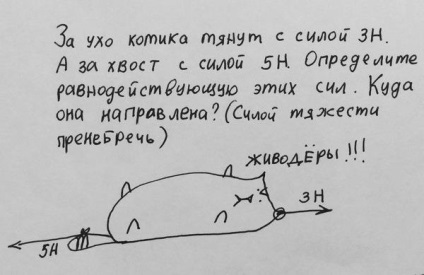 За ухо котика тянут с силой 3Н.
А за хвост с силой 5Н. Определите
равнодействующую этих сил. Куда
она направлена? (Силой тяжести
пренебречь)
ЖИВОДЁРЫ!!!
3Н
5Н